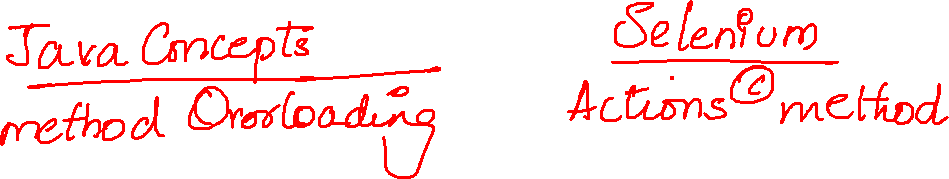 Java Concepts
method Overloading
Selenium
Actions © method